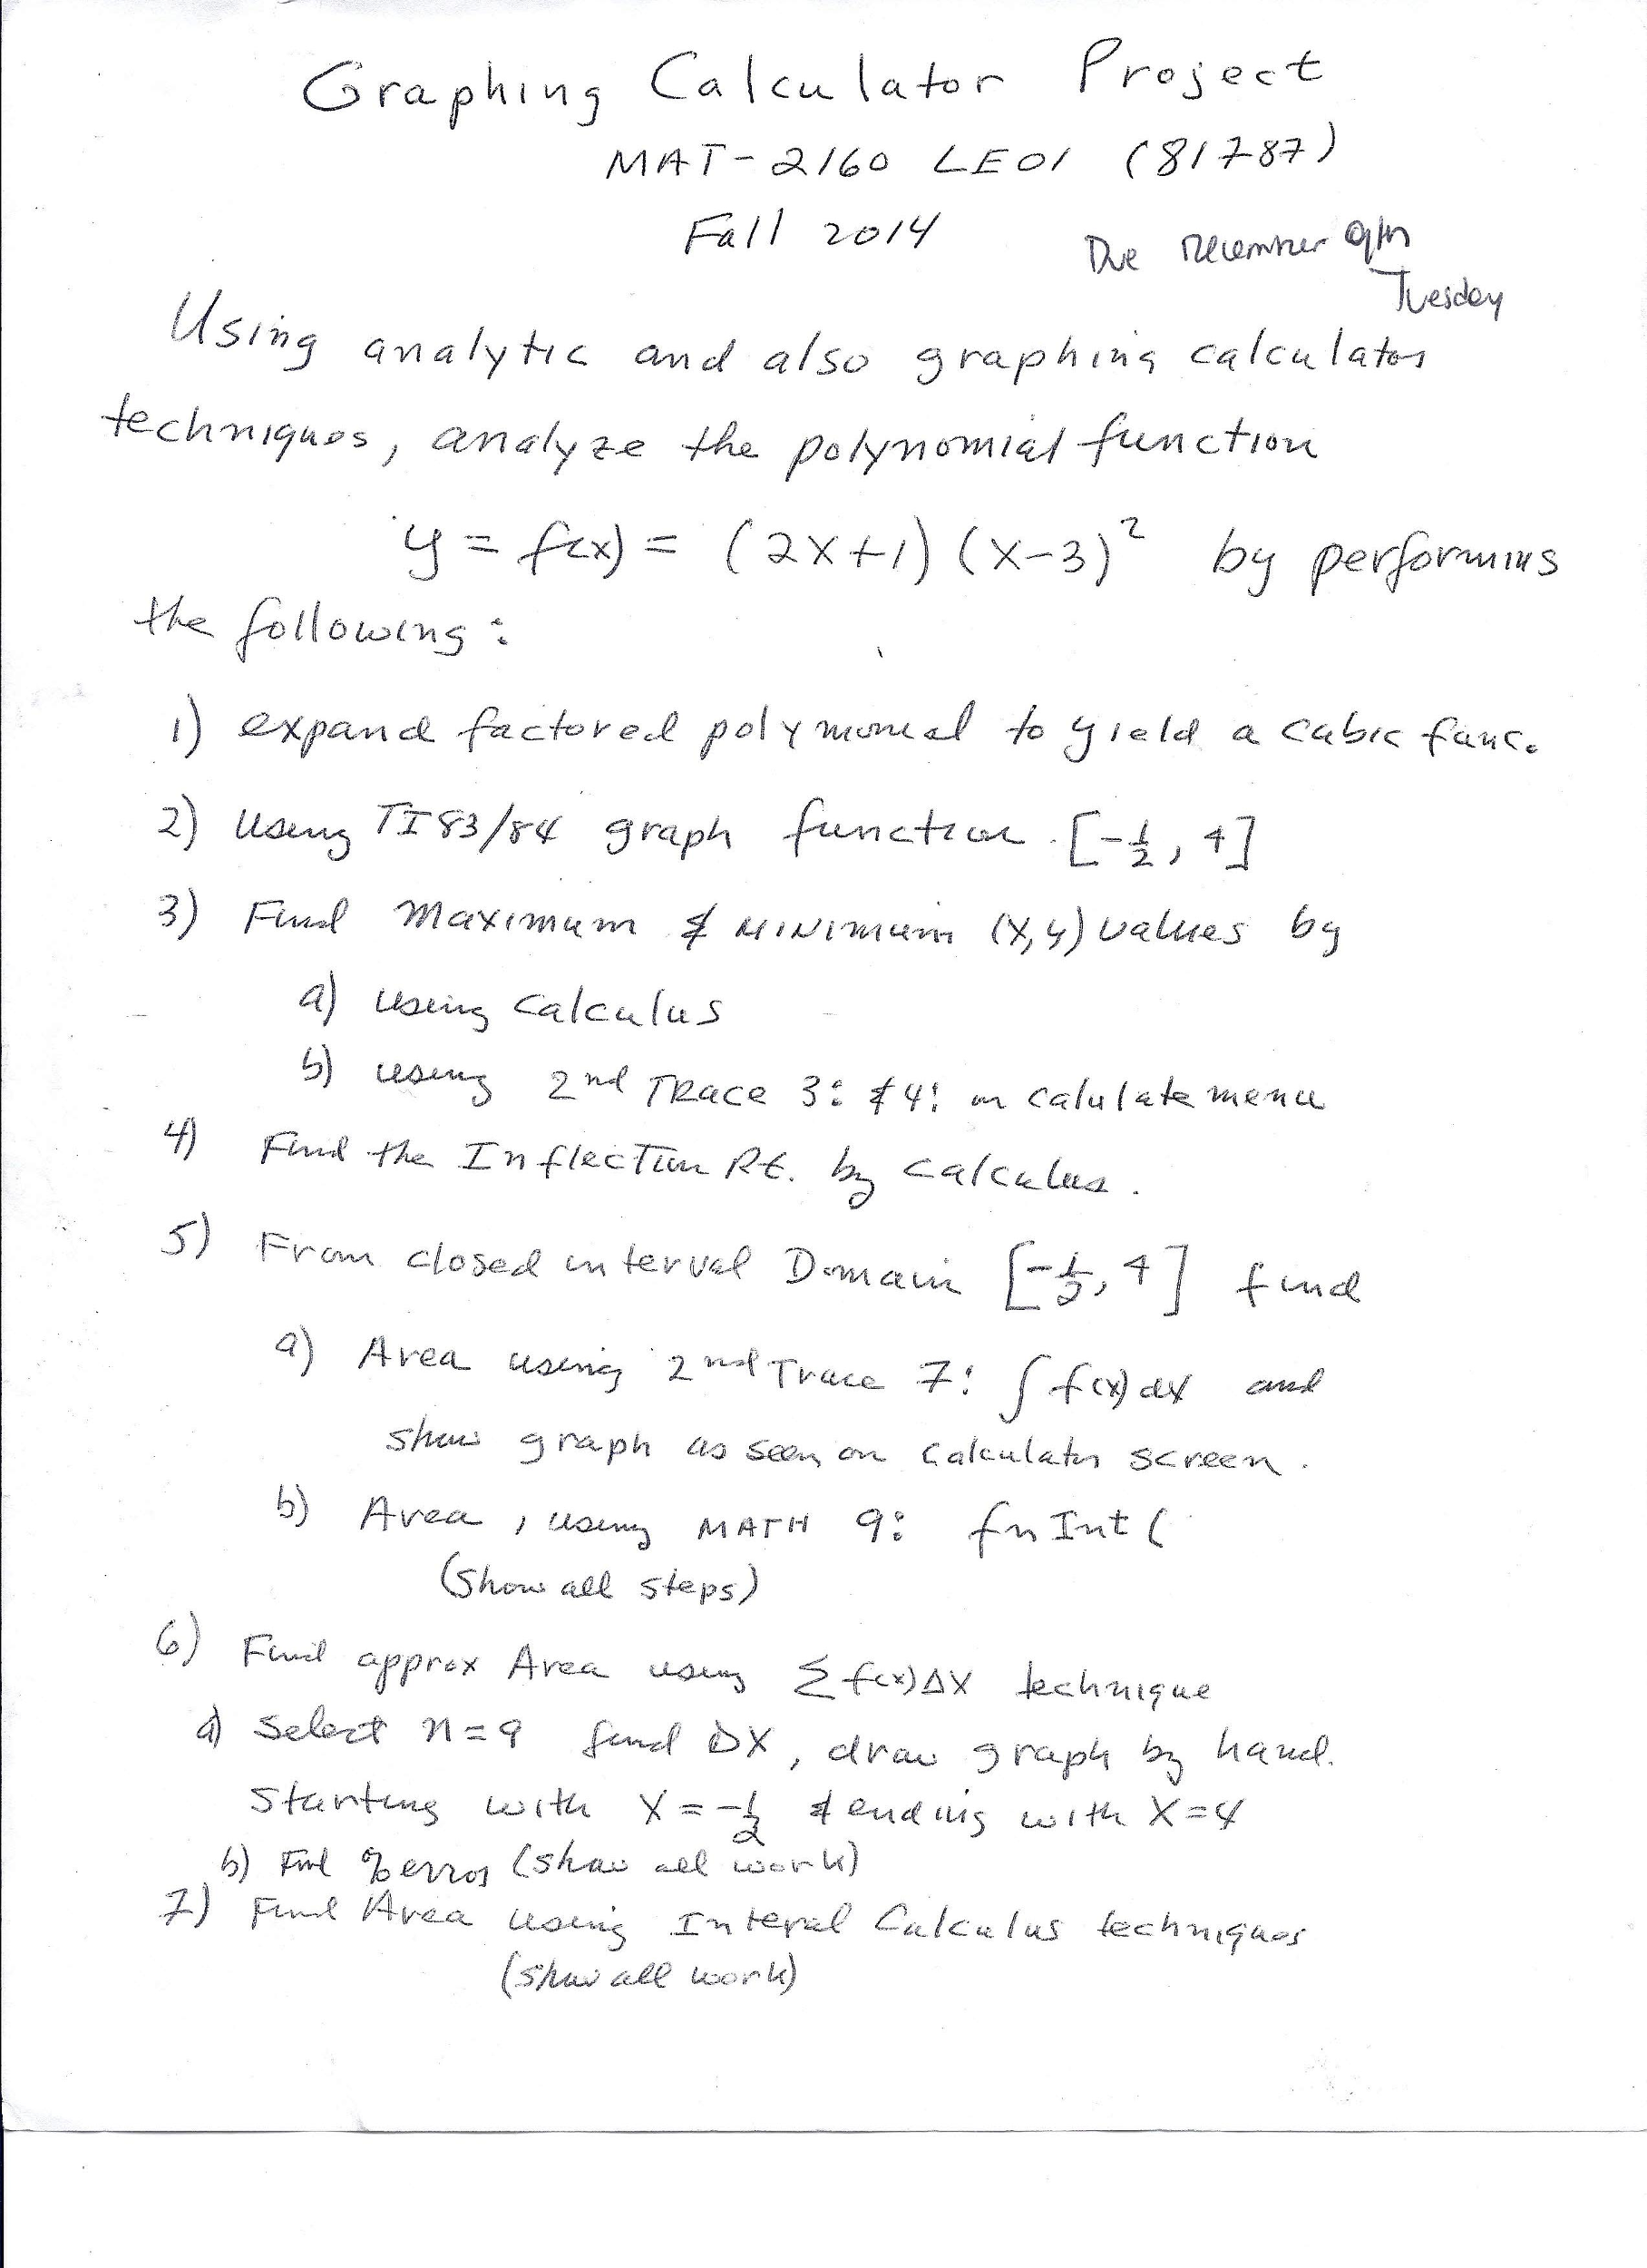 Graphing Calculator Project
MAT-2160 LE01 (81787)
Fall 2014
Due December 9th
Tuesday
Using analytic and also graphing calculator
techniques, analyze the polynomial function
y = f(x) = (2x+1)(x-3)² by performing
the following:
1) expand factored polynomial to yield a cubic func.
2) Using TI83/84 graph function [-½, 4]
3) Find Maximum & MINimum (x,y) values by
a) using calculus
b) using 2nd TRACE 3: & 4: on calulate menu
4) Find the Inflection Pt. by calculus.
5) From closed interval Domain [-½, 4] find
a) Area using 2nd Trace 7: ∫f(x)dx and
show graph as seen on calculator screen.
b) Area, using MATH 9: fnInt(
(Show all steps)
6) Find approx Area using Σf(x)Δx technique
a) Select n=9 find ΔX, draw graph by hand.
Starting with X=-½ & ending with X=4
b) Find % error (show all work)
7) Find Area using Interal Calculus techniques
(show all work)